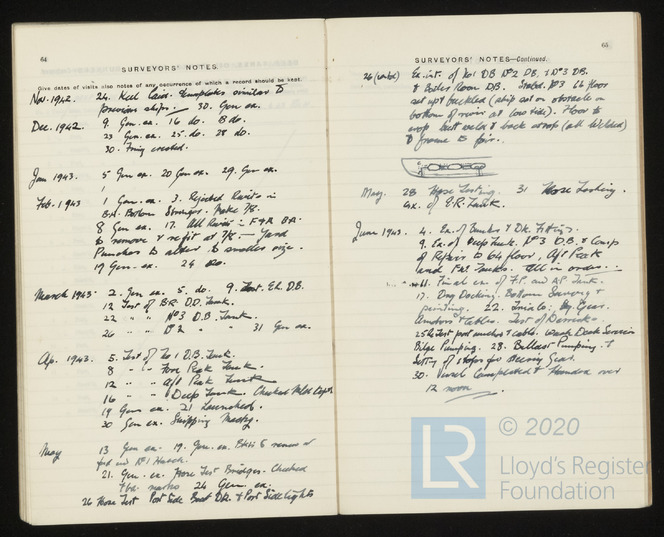 64
SURVEYORS' NOTES.
Give dates of visits also notes of any occurrence of which a record should be kept.
Nov. 1942. 24. Keel laid. Templates similar to
previous ships. 30. Gen ex.
Dec. 1942. 9. Gen. ex. 16 do. 18 do.
23 Gen. ex. 25. do. 28 do.
30. erected.
Jan 1943. 5 Gen ex. 20 Gen ex. 29. Gen ex.
Feb. 1943 1 Gen ex. 3. Rejected Rivets in
Bottom Make 7/8.
8 Gen ex. 17. All Rivets in
to remove & refit at 7/8 — Yard
Punches to alter to smaller size.
19 Gen. ex. 24 do.
March 1943. 2. Gen. ex. 5. do. 9. Test. D.B.
12 Test of B.R. D.B. Tank.
22 " " No 3 D.B. Tank.
26 " " No 2 " " 31 Gen ex.
Ap. 1943. 5. Test of No 1 D.B. Tank.
8 " " Fore Peak Tank.
12 " " Aft Peak Tank
16 " " Deep Tank. Checked Mld Depth
19 Gen ex. 21 Launched.
30 Gen ex. Shipping Masts.
May 13 Gen ex. 19. Gen. ex.
No 1 Hatch.
21. Gen. ex. Hose Test Bridges. Checked
marks 24 Gen. ex.
26 Hose Test Port Side Boat Dk. & Port Side lights
65
SURVEYORS' NOTES—Continued.
26 (contd) Ex. int. of No 1 DB No 2 DB. & No 3 DB.
& Boiler Room DB. No 3 64 floor
set up & buckled (ship sat on obstacle on
bottom of river at low tide). Floor to
crop butt weld & back (all Welded)
& frame to fair.
May. 28 Hose Testing. 31 Hose Testing.
Ex. of Tank.
June 1943. 4. Ex. of Bunks & Dk. Fittings.
9. Ex. of Deep Tank. No 3 D.B. & Comp
of Repairs to 64 floor, Aft Peak
and Tanks. All in order.
Final ex. of F.P. and A.P. Tank.
17. Dry Docking. Bottom
painting. 22. Gear.
Anchors & Cables. Test of Derricks.
25th Test port anchor & cable. Wash Deck Service
Bilge Pumping. 28. Ballast Pumping. &
Setting of stops for Steering Gear.
30. Vessel Completed & Handed over
12 noon.
LR
© 2020
Lloyd's Register
Foundation